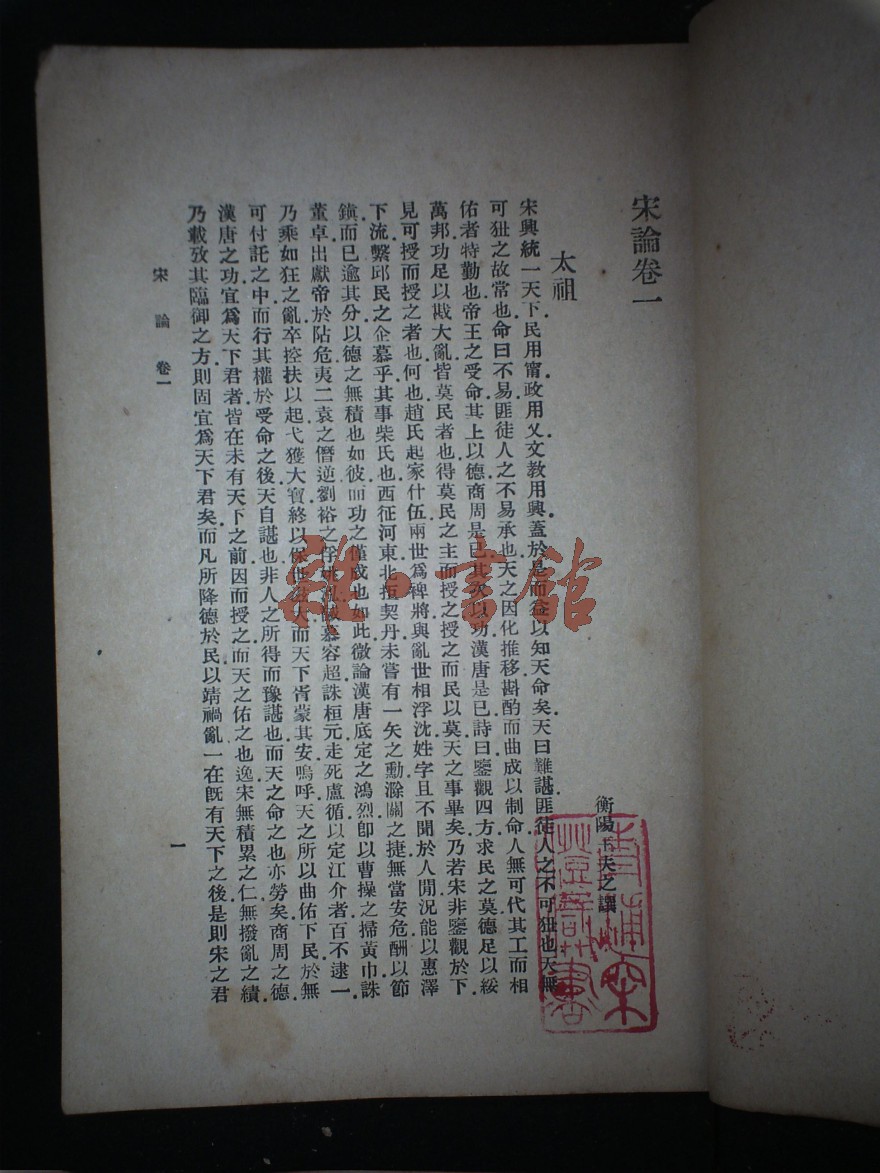 宋論卷一
衡陽王夫之譔
太祖
宋興統一天下民用甯政用乂文教用興蓋於是而益以知天命矣天曰難諶匪徒人之不可狃也天無
可狃之故常也命曰不易匪徒人之不易承也天之因化推移斟酌而曲成以制命人無可代其工而相
佑者特勤也帝王之受命其上以德商周是已其次以功漢唐是已詩曰鑒觀四方求民之莫德足以綏
萬邦功足以戡大亂皆莫民者也得莫民之主而授之授之而民以莫天之事畢矣乃若宋非鑒觀於下
見可授而授之者也何也趙氏起家什伍兩世爲裨將與亂世相浮沈姓字且不聞於人閒況能以惠澤
下流繫邱民之企慕乎其事柴氏也西征河東北拒契丹未嘗有一矢之勳滁關之捷無當安危酬以節
鎮而已逾其分以德之無積也如彼而功之僅成也如此微論漢唐底定之鴻烈卽以曹操之掃黃巾誅
董卓出獻帝於阽危夷二袁之僭逆劉裕之俘姚泓馘慕容超誅桓元走死盧循以定江介者百不逮一
乃乘如狂之亂卒控扶以起弋獲大寶終以保世滋大而天下胥蒙其安嗚呼天之所以曲佑下民於無
可付託之中而行其權於受命之後天自諶也非人之所得而豫諶也而天之命之也亦勞矣商周之德
漢唐之功宜爲天下君者皆在未有天下之前因而授之而天之佑之也逸宋無積累之仁無撥亂之績
乃載攷其臨御之方則固宜爲天下君矣而凡所降德於民以靖禍亂一在旣有天下之後是則宋之君
宋論 卷一
一
雜·書館